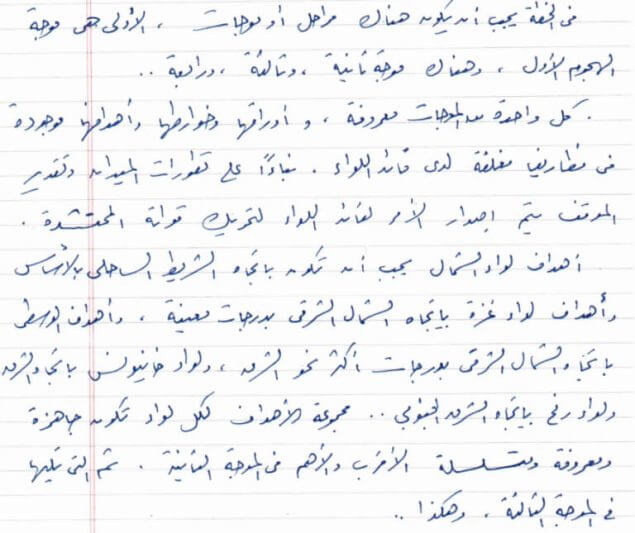 في الخطة يجب أن يكون هناك مراحل أو موجات ، الأولى هي موجة
الهجوم الأول ، وهناك موجة ثانية ، وثالثة ، ورابعة ..
. كل واحدة من الموجات معروفة ، و أوراقها وخوارطها وأهدافها موجودة
في مظاريف مغلقة لدى قائد اللواء . بناءًا على تطورات الميدان وتقدير
الموقف يتم إصدار الأمر لقائد اللواء لتحريك قواته المحتشدة .
أهداف لواء الشمال يجب أن تكون باتجاه الشريط الساحلي بالأساس
وأهداف لواء غزة باتجاه الشمال الشرقي بدرجات معينة ، وأهداف الوسطى
باتجاه الشمال الشرقي بدرجات أكثر نحو الشرق ، ولواء خانيونس باتجاه الشرق
ولواء رفح باتجاه الشرق الجنوبي .. مجموعة الأهداف لكل لواء تكون جاهزة
ومعروفة ومتسلسلة الأقرب والأهم في الموجة الثانية . ثم التي تليها
في الموجة الثالثة ، وهكذا ..